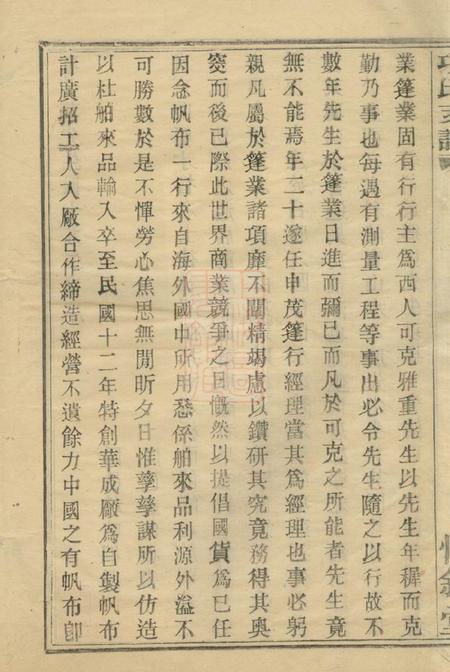 業篷業固有行行主爲西人可克雅重先生以先生年穉而克
勤乃事也每遇有測量工程等事出必令先生隨之以行故不
數年先生於篷業日進而彌已而凡於可克之所能者先生竟
無不能焉年二十遂任申茂篷行經理當其爲經理也事必躬
親凡屬於篷業諸項靡不閣精竭慮以鑽研其究竟務得其奧
窔而後已際此世界商業競爭之日慨然以提倡國貨爲已任
因念帆布一行來自海外國中所用悉係舶來品利源外溢不
可勝數於是不憚勞心焦思無閒昕夕日惟孳孳謀所以仿造
以杜舶來品輸入卒至民國十二年特創華成厰爲自製帆布
計廣招工人入厰合作締造經營不遺餘力中國之有帆布卽